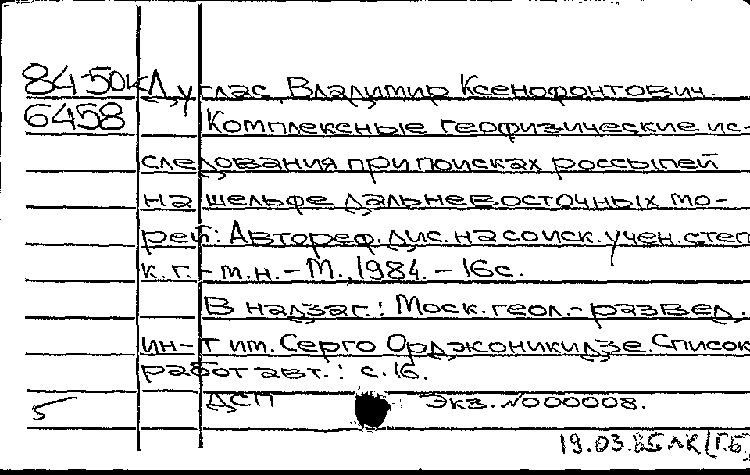 8450к Дуглас, Владимир Ксенофонтович.
6458 Комплексные геофизические ис-
следования при поисках россыпей
на шельфе дальневосточных мо-
рей: Автореф. дис. на соиск. учен. степ
к. г.-м. н. - М., 1984. - 16с.
В надзаг.: Моск. геол.- развед.
ин-т им. Серго Орджоникидзе. Список
работ авт.: с. 16.
5 ДСП Экз. №000008.
19.03.85 ЛК(Г.Б)